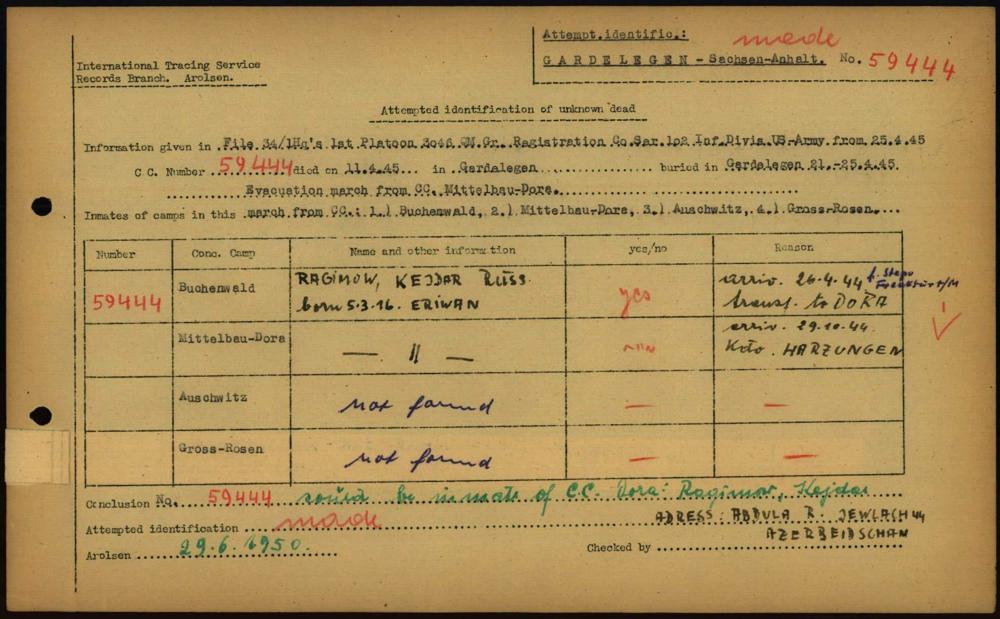 Attempt.identific.: made
GARDELEGEN - Sachsen-Anhalt. No. 59444
International Tracing Service
Records Branch. Arolsen.
Attempted identification of unknown dead
Information given in File 34/1Hq's 1st Platoon 3046 QM.Gr. Registration Co.Sar.102 Inf.Divis.US-Army from 25.4.45
C.C. Number 59444 died on 11.4.45 in Gardelegen buried in Gardelegen 21.-25.4.45
Evacuation march from CC. Mittelbau-Dora.
Inmates of camps in this march from CC.: 1.) Buchenwald, 2.) Mittelbau-Dora, 3.) Auschwitz, 4.) Gross-Rosen.
Number Conc. Camp Name and other information yes/no Reason
59444 Buchenwald RAGIMOW, KEJDAR RUSS. yes arriv. 26.4.44 f. Stapo Frankfurt/M
born 5.3.16. ERIWAN transf. to DORA
Mittelbau-Dora — " — arriv. 29.10.44.
Kdo. HARZUNGEN
Auschwitz not found — —
Gross-Rosen not found — —
Conclusion No. 59444 could be inmate of C.C. Dora: Ragimow, Kejdar
Attempted identification made ADRESS: ABDULA R. JEWLACH 44
AZERBEIDSCHAN
Arolsen 29.6.1950. Checked by